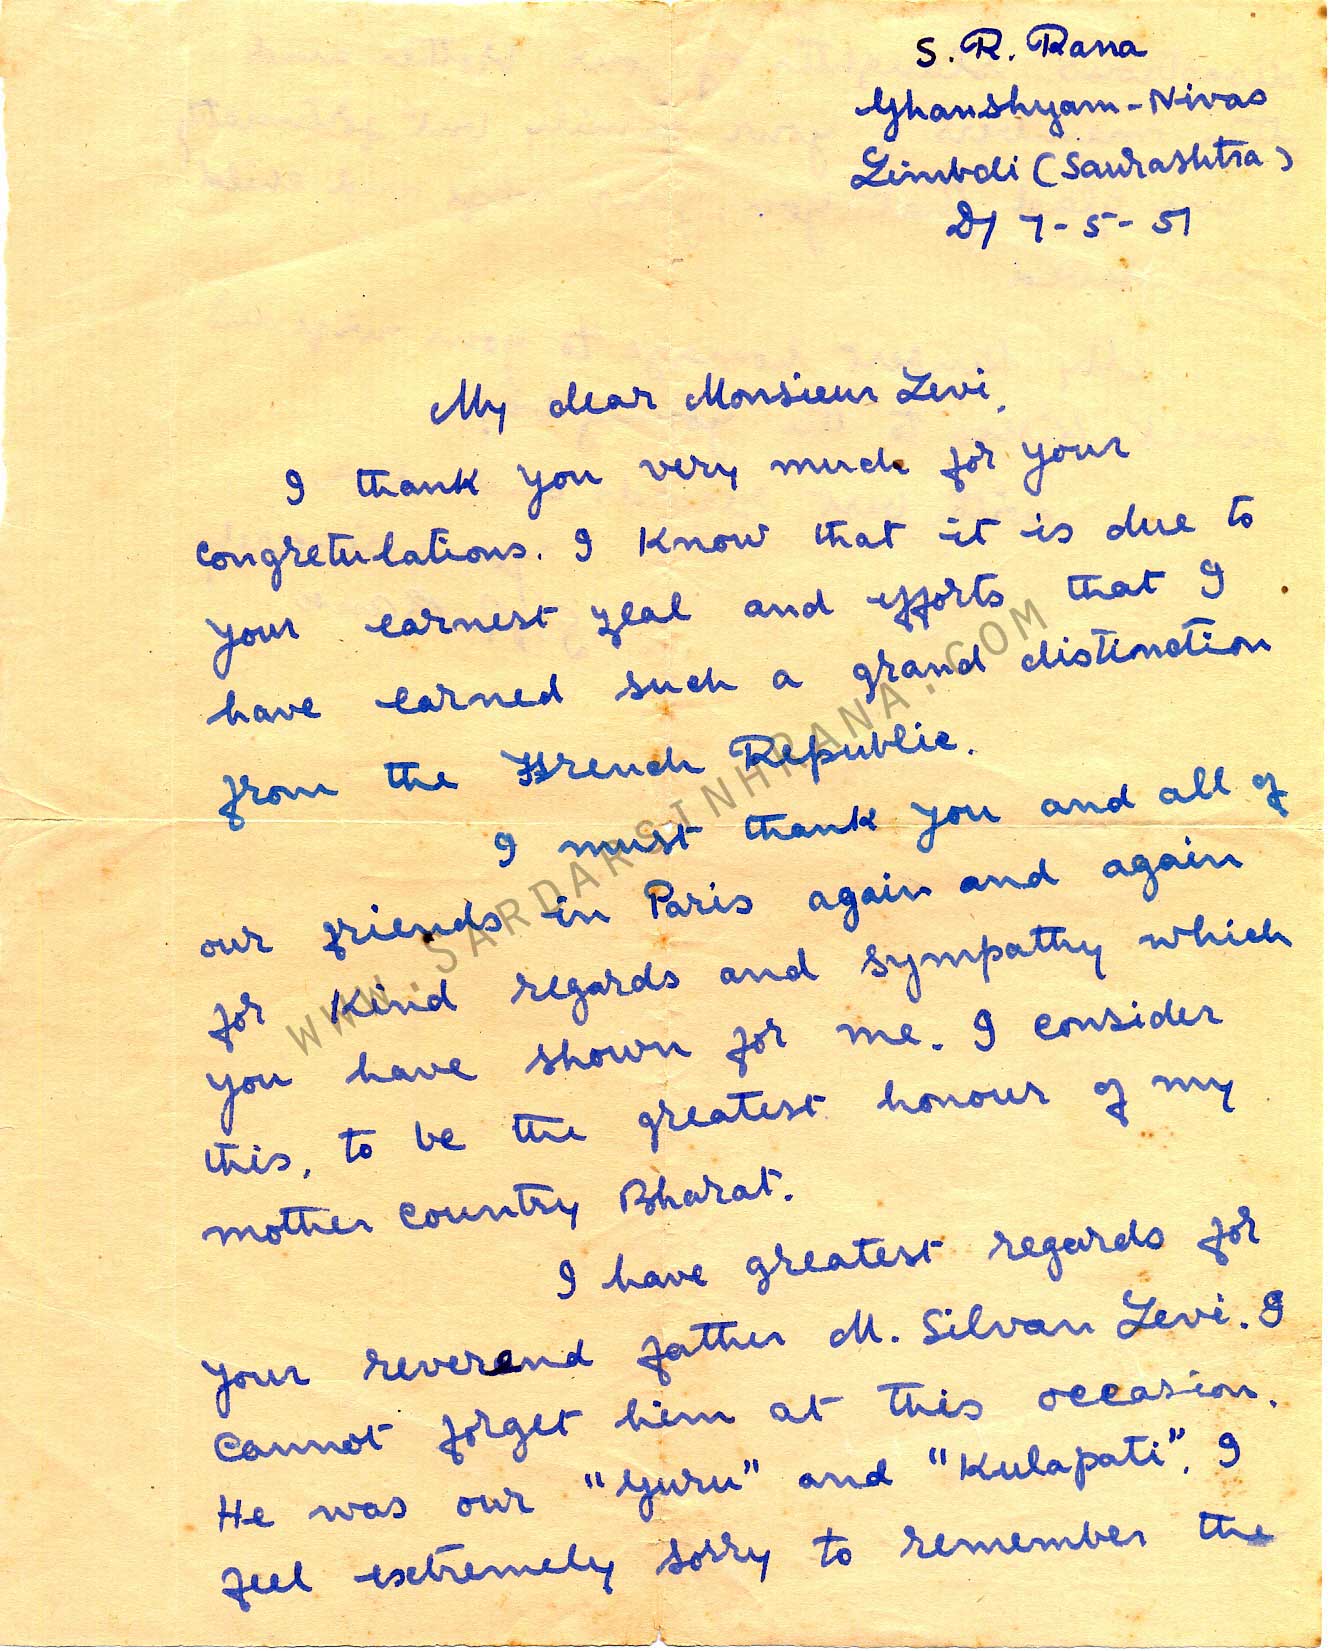 S. R. Rana
Ghanshyam-Nivas
Limbdi (Saurashtra)
D/ 7-5-51
My dear Monsieur Levi,
I thank you very much for your
congretulations. I know that it is due to
your earnest zeal and efforts that I
have earned such a grand distinction
from the French Republic.
I must thank you and all of
our friends in Paris again and again
for kind regards and sympathy which
you have shown for me. I consider
this, to be the greatest honour of my
mother country Bharat.
I have greatest regards for
your reverend father M. Silvan Levi. I
cannot forget him at this occasion.
He was our "Guru" and "Kulapati". I
feel extremely sorry to remember the
WWW.SARDARSINHRANA.COM